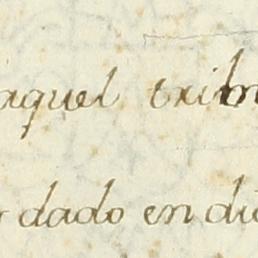 aquel trib
dado en di